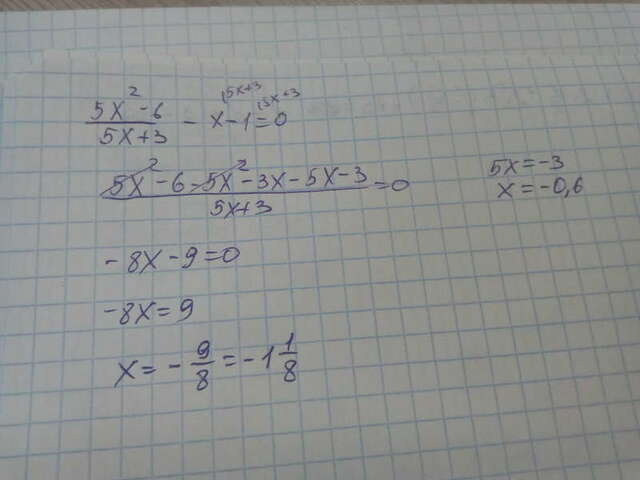 5x² - 6 / 5x+3 - x^(5x+3 - 1^(5x+3 = 0
5x² - 6 - 5x² - 3x - 5x - 3 / 5x+3 = 0
5x = -3
x = -0,6
-8x - 9 = 0
-8x = 9
x = - 9/8 = -1 1/8